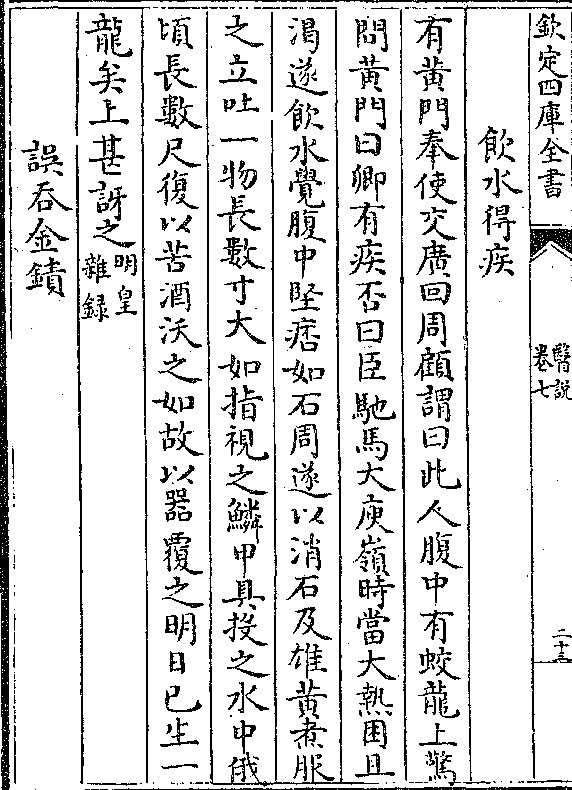 欽定四庫全書
醫說
卷七
二十三
飲水得疾
有黃門奉使交廣回周顧謂曰此人腹中有蛟龍上驚
問黃門曰卿有疾否曰臣馳馬大庾嶺時當大熱困且
渴遂飲水覺腹中堅痞如石周遂以消石及雄黃煮服
之立吐一物長數寸大如指視之鱗甲具投之水中俄
頃長數尺復以苦酒沃之如故以器覆之明日已生一
龍矣上甚訝之明皇
雜録
誤吞金鐀